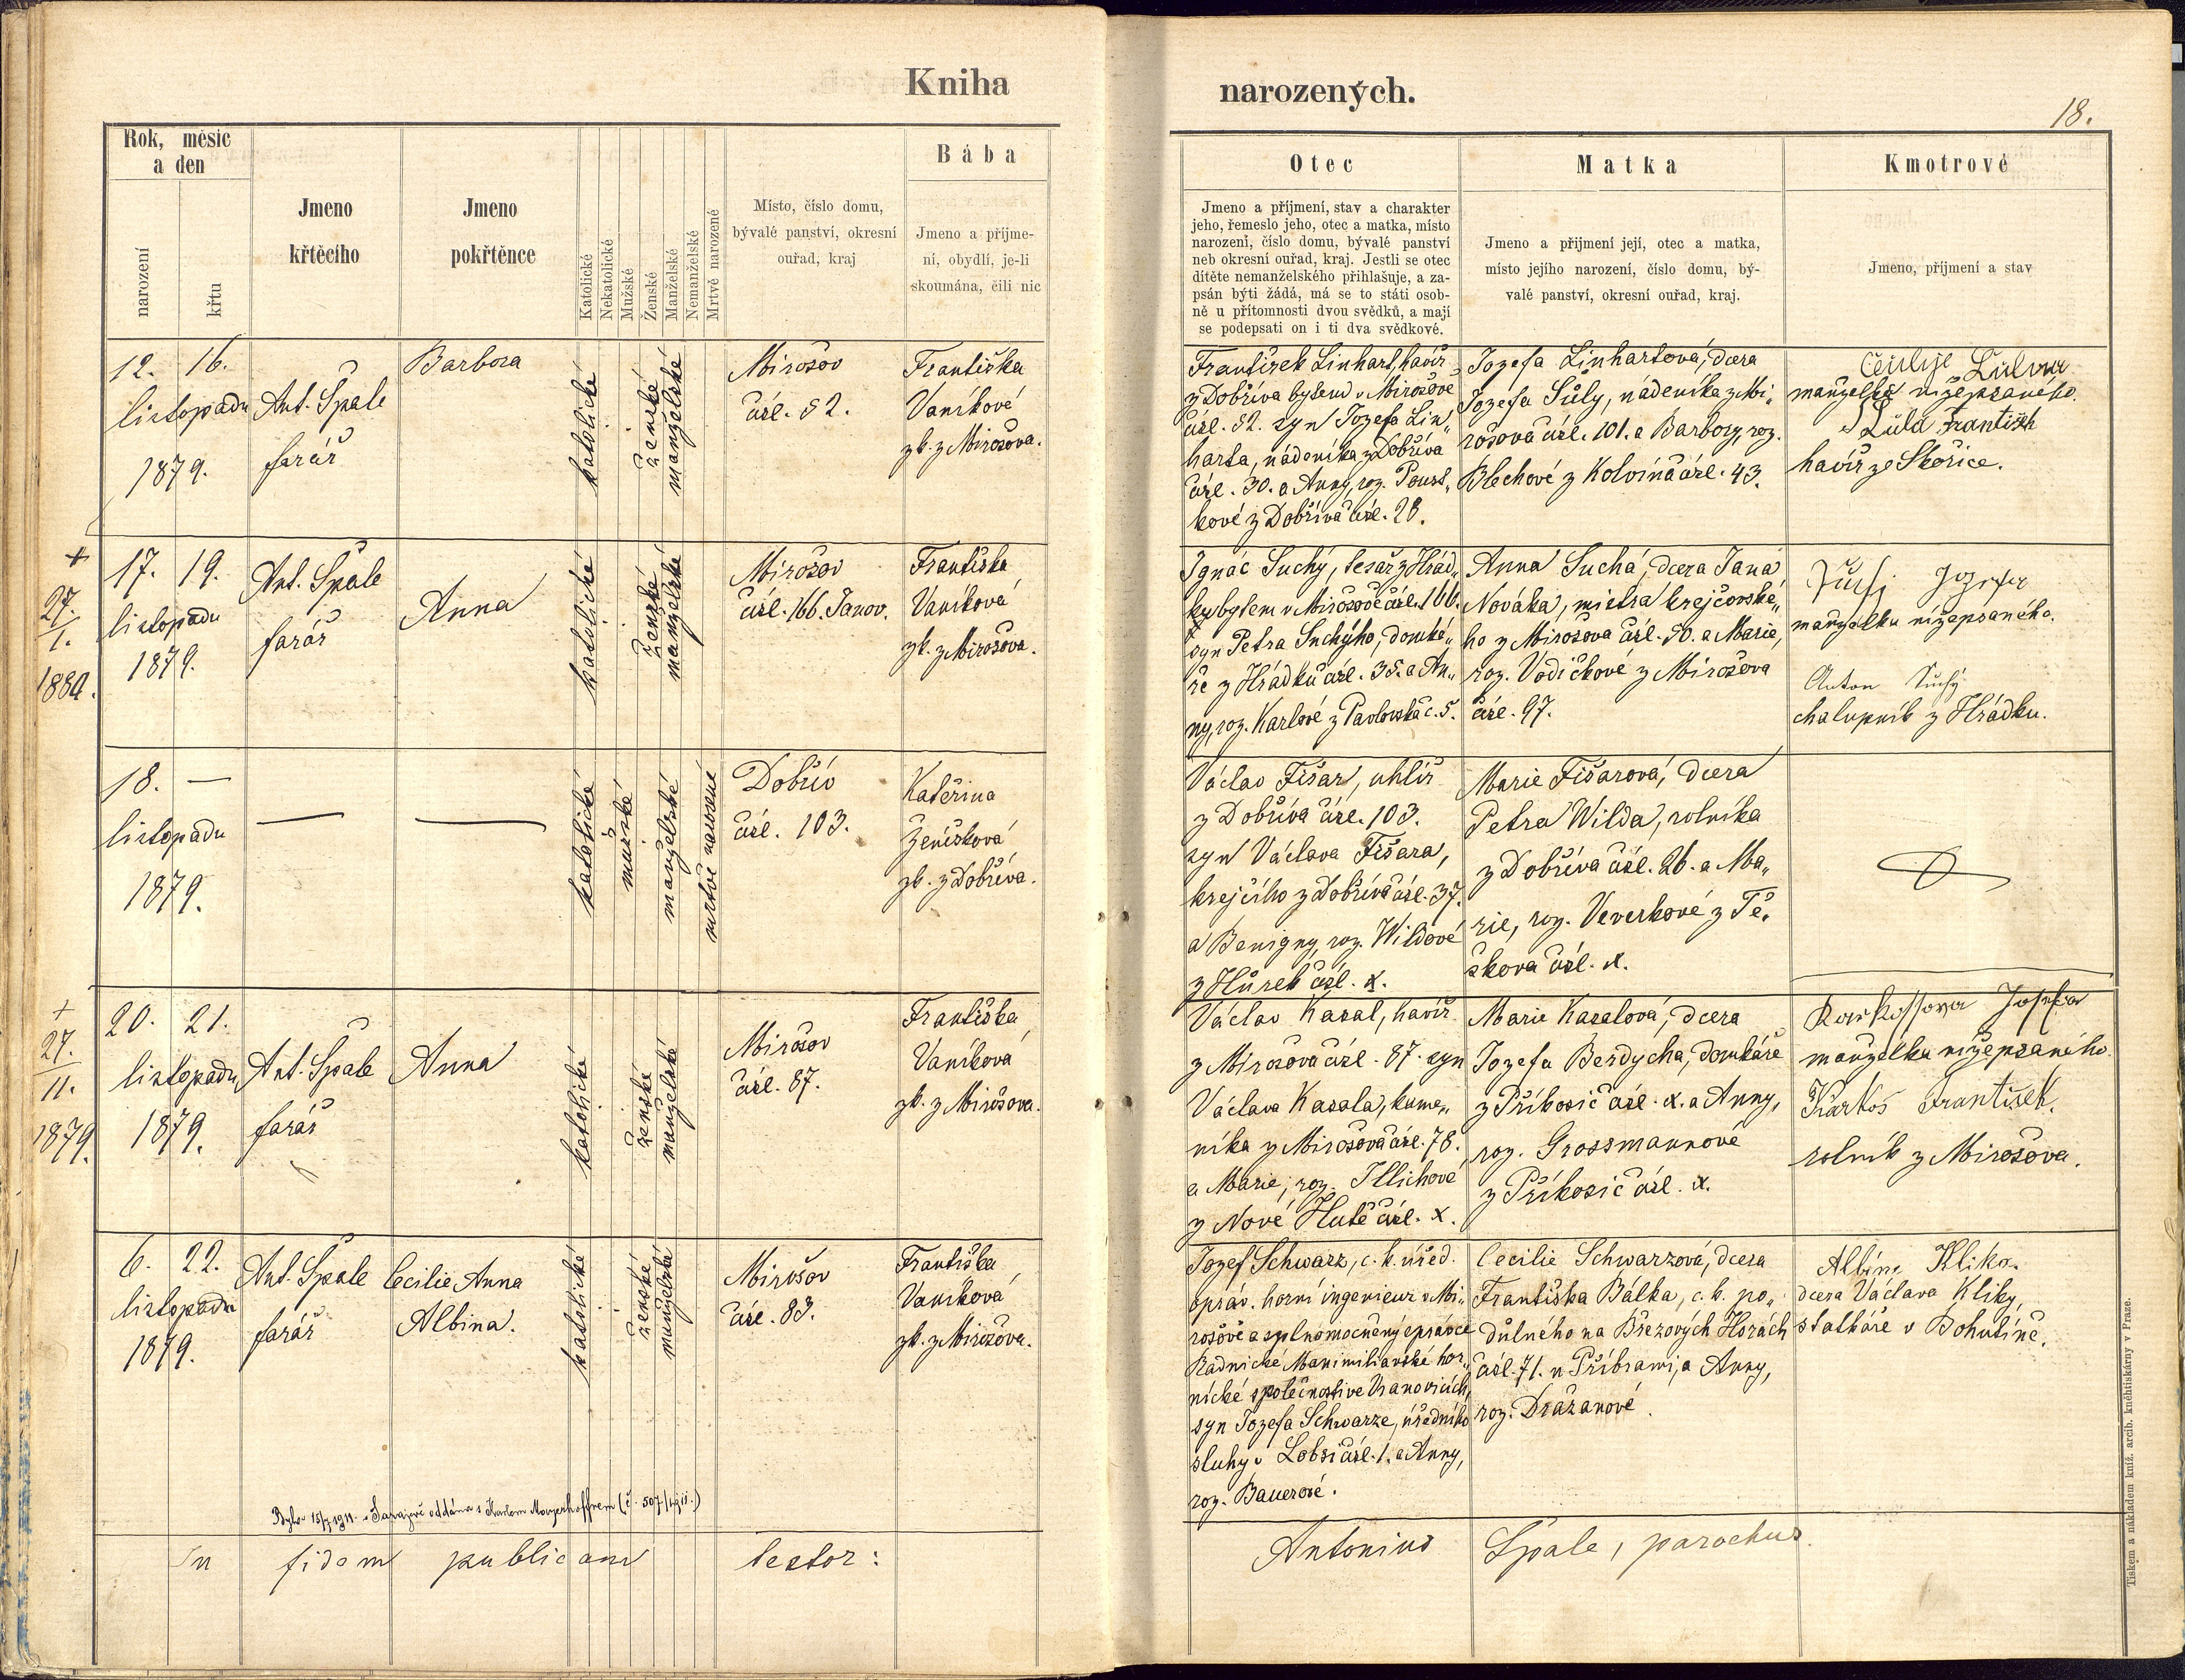 Kniha
narozených.
18.
Rok, měsíc
a den
narození
křtu
Jmeno
křtěcího
Jmeno
pokřtěnce
Katolické
Nekatolické
Mužské
Ženské
Manželské
Nemanželské
Mrtvě narozené
Místo, číslo domu,
bývalé panství, okresní
ouřad, kraj
Bába
Jmeno a příjme-
ní, obydlí, je-li
skoumána, čili nic
Otec
Jmeno a příjmení, stav a charakter
jeho, řemeslo jeho, otec a matka, místo
narození, číslo domu, bývalé panství
neb okresní ouřad, kraj. Jestli se otec
dítěte nemanželského přihlašuje, a za-
psán býti žádá, má se to státi osob-
ně u přítomnosti dvou svědků, a mají
se podepsati on i ti dva svědkové.
Matka
Jmeno a příjmení její, otec a matka,
místo jejího narození, číslo domu, bý-
valé panství, okresní ouřad, kraj.
Kmotrové
Jmeno, příjmení a stav
12. 16.
listopadu
1879.
Ant. Špale
farář
Barbora
katolické
ženské
manželské
Mirošov
čísl. 52.
Františka
Vaníkové
zk. z Mirošova.
František Linhart, havíř
z Dobříva bytem v Mirošově
čísl. 52. syn Jozefa Lin„
harta, nádeníka z Dobříva
čísl. 30. a Anny, roz. Poust„
kové z Dobříva čísl. 28.
Jozefa Linhartová, dcera
Jozefa Sůly, nádeníka z Mi„
rošova čísl. 101. a Barbory, roz.
Blechové z Kolvína čísl. 43.
manželka nížepsaného.
František
havíř ze Skořice.
+
27.
1.
1880.
17. 19.
listopadu
1879.
Ant. Špale
farář
Anna
katolické
ženské
manželské
Mirošov
čísl. 166. Janov.
Františka
Vaníková
zk. z Mirošova.
Ignác Suchý, tesař z Hrád„
ku bytem v Mirošově čísl. 166.
syn Petra Suchýho, domká„
ře z Hrádku čísl. 35. a An„
ny, roz. Karlové z Pavlovska č. 5.
Anna Suchá, dcera Jana
Nováka, mistra krejčovské„
ho z Mirošova čísl. 50. a Marie,
roz. Vodičkové z Mirošova
čísl. 97.
Jozefa
manželka nížepsaného.
Anton Suchý
chalupník z Hrádku.
18. —
listopadu
1879.
katolické
mužské
manželské
mrtvě narozené
Dobřív
čísl. 103.
Kateřina
Ženíšková
zk. z Dobříva.
Václav Fišar, uhlíř
z Dobříva čísl. 103.
syn Václava Fišara,
krejčího z Dobříva čísl. 37.
a Benigny, roz. Wildové
z Hůrek čísl. x.
Marie Fišarová, dcera
Petra Wilda, rolníka
z Dobříva čísl. 26. a Ma„
rie, roz. Veverkové z Tě„
škova čísl. x.
+
27.
11.
1879.
20. 21.
listopadu
1879.
Ant. Špale
farář
Anna
katolické
ženské
manželské
Mirošov
čísl. 87.
Františka
Vaníková
zk. z Mirošova.
Václav Kasal, havíř
z Mirošova čísl. 87. syn
Václava Kasala, kame„
níka z Mirošova čísl. 78.
a Marie, roz. Illichové
z Nové Hutě čísl. x.
Marie Kasalová, dcera
Jozefa Berdycha, domkáře
z Příkosic čísl. x. a Anny,
roz. Grossmannové
z Příkosic čísl. x.
Josefa
manželka nížepsaného
Karkoš František.
rolník z Mirošova.
6. 22.
listopadu
1879.
Ant. Špale
farář
Cecilie Anna
Albina.
katolické
ženské
manželské
Mirošov
čísl. 83.
Františka
Vaníková
zk. z Mirošova.
Jozef Schwarz, c. k. úřed.
opráv. horní ingenieur v Mi„
rošově a splnomocněný správce
Radnické Maximilianské hor„
nické společnosti ve Vranovicích,
syn Jozefa Schwarze, úředního
sluhy v Lobsi čísl. 1. a Anny,
roz. Bauerové.
Cecilie Schwarzová, dcera
Františka Bálka, c. k. po„
důlného na Březových Horách
čísl. 71. u Příbrami, a Anny,
roz. Dražanové.
Albína Klika.
dcera Václava Kliky,
statkáře v Bohutíně.
Byla 15/7 1911 v Sarajevě oddána s Karlem Mayerhofferem (č. 507/1911.)
In fidem publicam testor:
Antonius Špale, parochus.
Tiskem a nákladem kníž. arcib. kněhtiskárny v Praze.